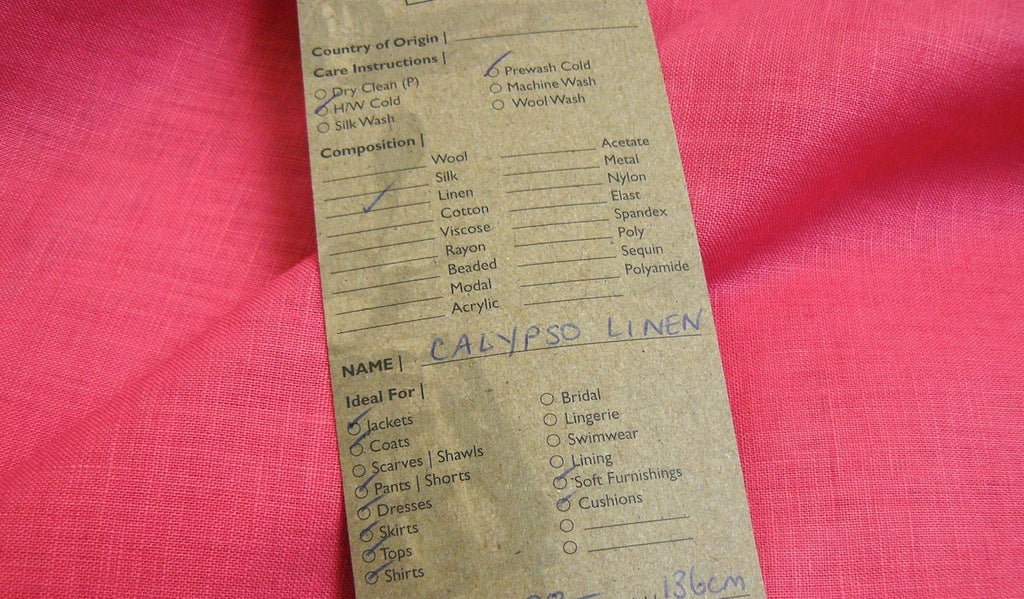 Country of Origin |
Care Instructions |
Dry Clean (P)
H/W Cold
Silk Wash
Prewash Cold
Machine Wash
Wool Wash
Composition |
Wool
Silk
Linen
Cotton
Viscose
Rayon
Beaded
Modal
Acrylic
Acetate
Metal
Nylon
Elast
Spandex
Poly
Sequin
Polyamide
NAME | CALYPSO LINEN
Ideal For |
Jackets
Coats
Scarves | Shawls
Pants | Shorts
Dresses
Skirts
Tops
Shirts
Bridal
Lingerie
Swimwear
Lining
Soft Furnishings
Cushions
136cm